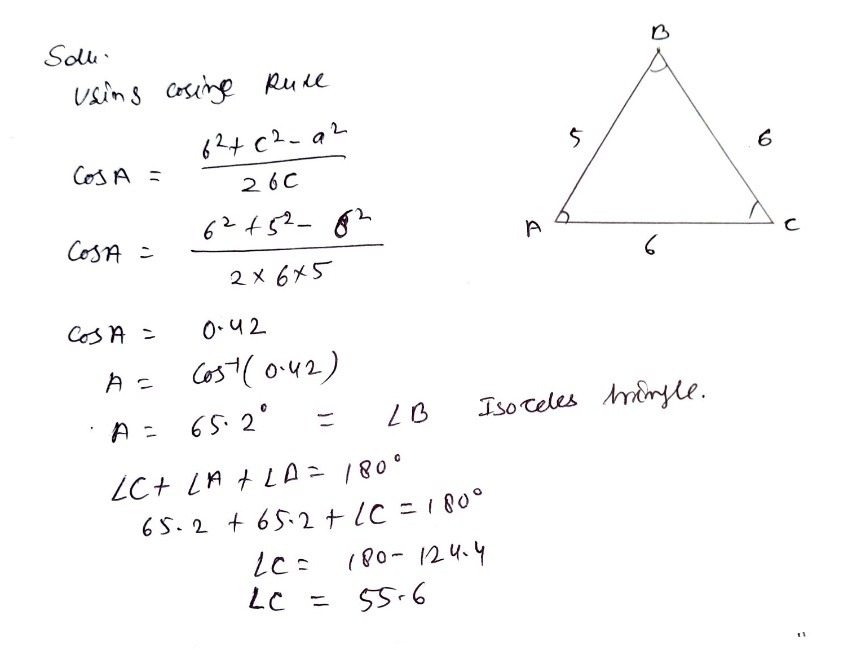 Solu.
Using cosine Rule
Cos A = b² + c² - a² / 2bc
Cos A = 6² + 5² - 6² / 2 × 6 × 5
Cos A = 0.42
A = Cos⁻¹(0.42)
A = 65.2° = ∠B Isoceles triangle.
∠C + ∠A + ∠A = 180°
65.2 + 65.2 + ∠C = 180°
∠C = 180 - 124.4
∠C = 55.6
B
5 6
A C
6